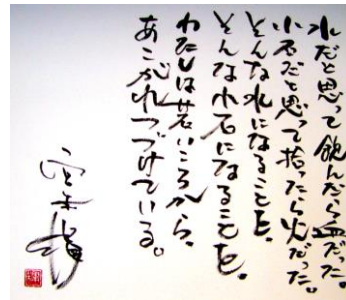 水だと思って飲んだら血だった。
小石だと思って拾ったら火だった。
そんな水になることを、
そんな小石になることを、
わたしは若いころから、
あこがれつづけている。